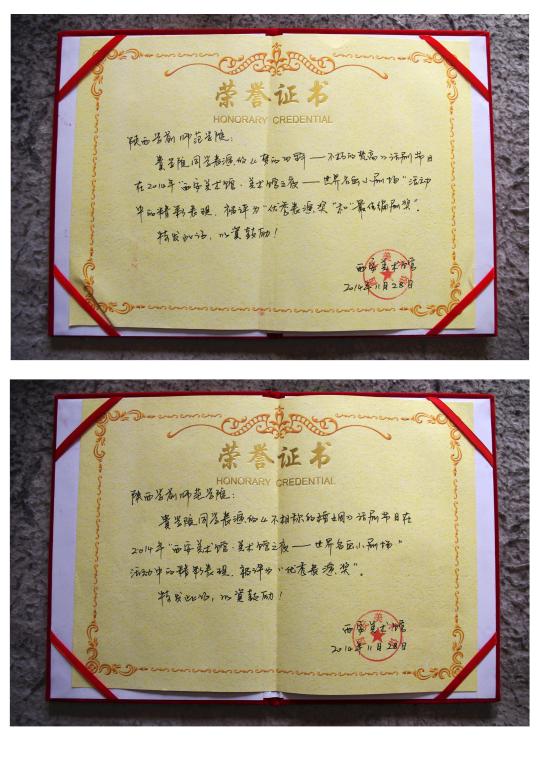 荣誉证书
HONORARY CREDENTIAL
陕西学前师范学院：
贵学院同学表演的《梦的田野——不朽的梵高》话剧节目
在2014年“西安美术馆·美术馆之夜——世界名画小剧场”活动
中的精彩表现，被评为“优秀表演奖”和“最佳编剧奖”。
特发此证，以资鼓励！
西安美术馆
2014年11月28日
荣誉证书
HONORARY CREDENTIAL
陕西学前师范学院：
贵学院同学表演的《不相称的婚姻》话剧节目在
2014年“西安美术馆·美术馆之夜——世界名画小剧场”
活动中的精彩表现，被评为“优秀表演奖”。
特发此证，以资鼓励！
西安美术馆
2014年11月28日